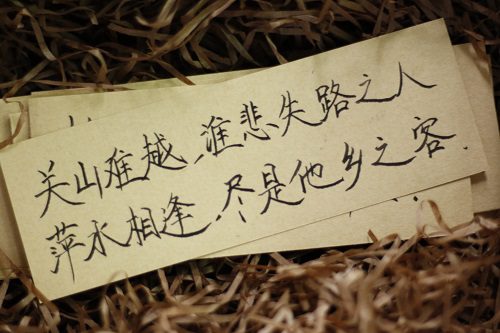 关山难越,谁悲失路之人
萍水相逢,尽是他乡之客.